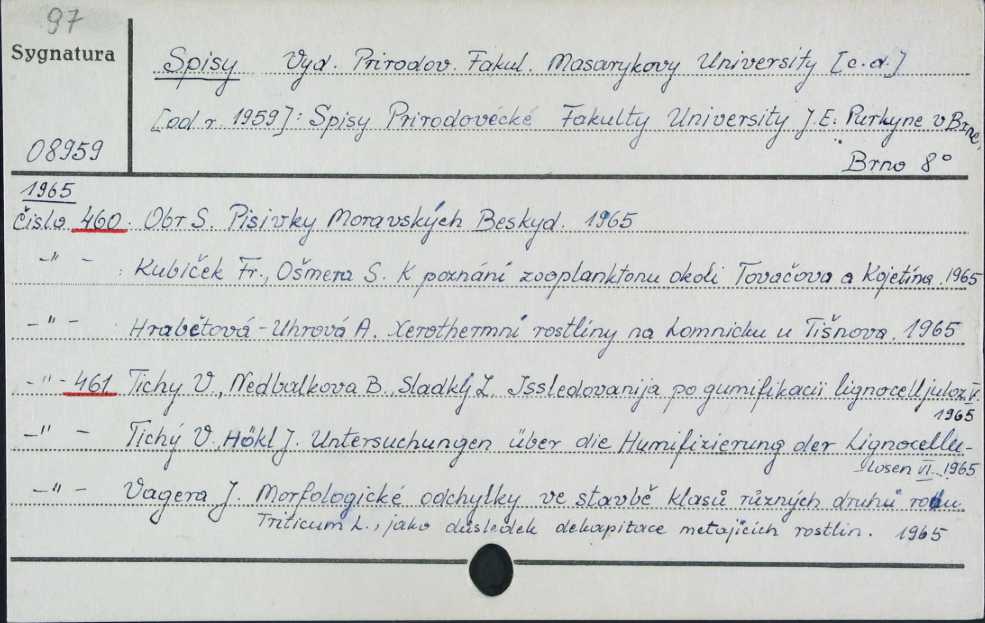 97
Sygnatura
Spisy Vyd. Prirodov. Fakul. Masarykovy University [c.d.]
[od r. 1959]: Spisy Prirodovécké Fakulty University J.E. Purkyne v Brne,
08959
Brno 8°
1965
Čislo 460. Obr S. Pisivky Moravských Beskyd. 1965
-"- : Kubiček Fr., Ošmera S. K poznání zooplanktonu okoli Tovačova a Kojetína. 1965
-"- Hrabětová-Uhrová A. Xerothermní rostliny na Lomnicku u Tišnova. 1965
-"- 461 Tichy V., Nedbalkova B., Sladký Z. Issledovanija po gumifikacii lignocelljuloz V.
1965
-"- Tichý V., Hökl J. Untersuchungen über die Humifizierung der Lignocellu-
losen VI. 1965
-"- Vagera J. Morfologické odchylky ve stavbě klasů různých druhů rodu
Triticum L., jako důsledek dekapitace metajících rostlin. 1965